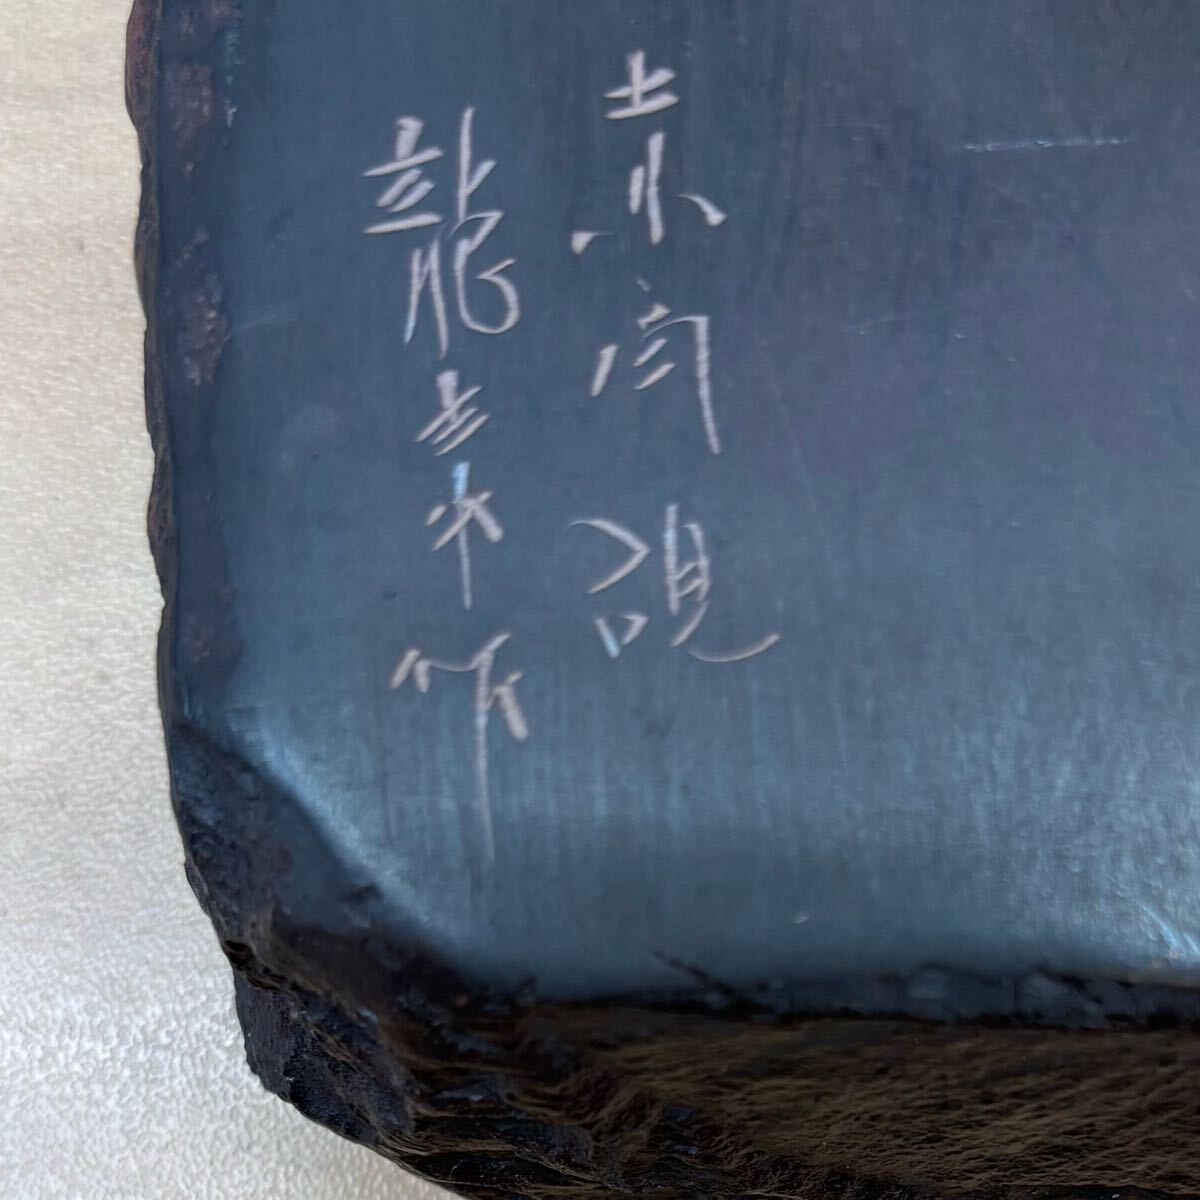 赤間硯
龍峯作